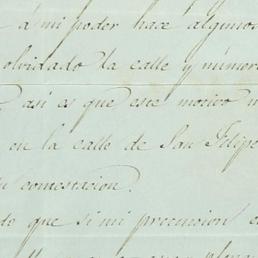 á mi poder hace algunos
olvidado la calle y número
así es que este motivo
en la calle de San Felipe
contestacion.
que si mi precension